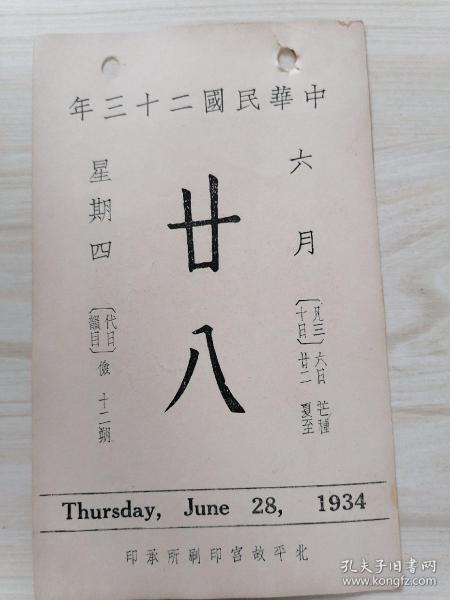 中華民國二十三年
六月
凡三十日
六日 芒種
廿二 夏至
廿八
星期四
代日韻目
儉 十二朔
Thursday, June 28, 1934
北平故宮印刷所承印
孔夫子旧书网
www.kongfz.com